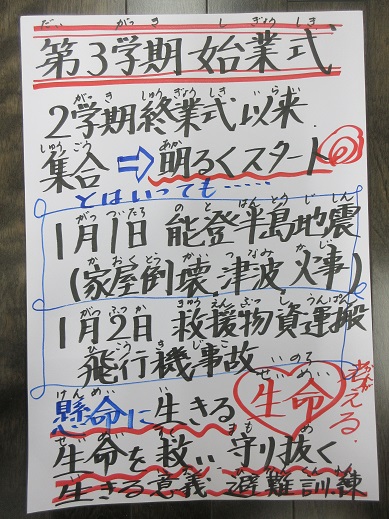 第3学期始業式
2学期終業式以来
集合⇨明るくスタート
とはいっても……
1月1日 能登半島地震
(家屋倒壊、津波、火事)
1月2日 救援物資運搬
飛行機事故
懸命に生きる 生命
生命を救い守り抜く
生きる意義 避難訓練